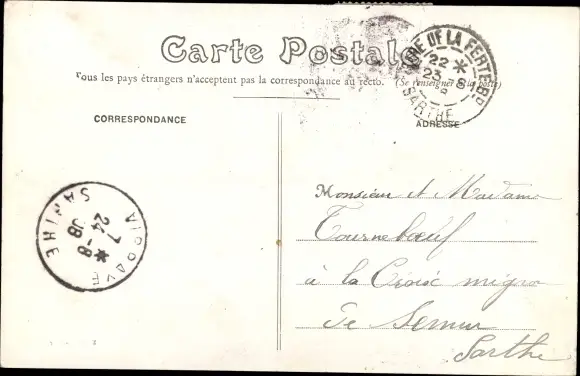 Carte Postale
Tous les pays étrangers n'acceptent pas la correspondance au recto. (Se renseigner à la poste)
CORRESPONDANCE
ADRESSE
GARE DE LA FERTÉ-BD
22 *
23 - 8
SARTHE
Monsieur et Madame
Tournebœuf
à la Croix
De Semur
Sarthe
VIBRAYE
7 *
24 - 8
08
SARTHE